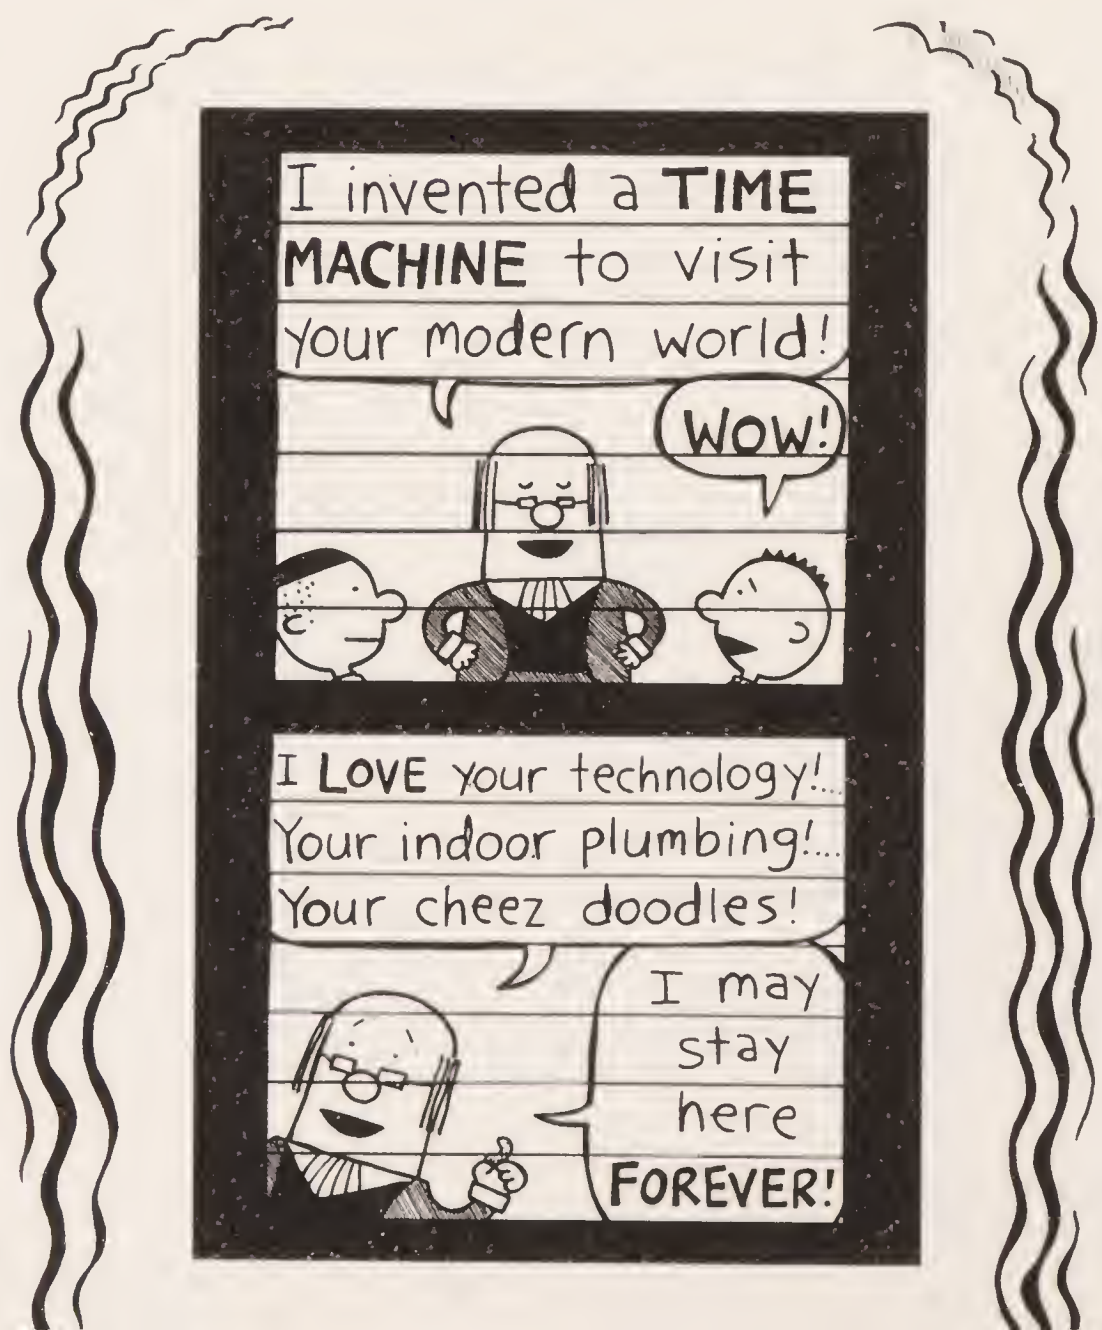 I invented a TIME
MACHINE to visit
your modern world!
WOW!
I LOVE your technology!...
Your indoor plumbing!...
Your cheez doodles!
I may
stay
here
FOREVER!